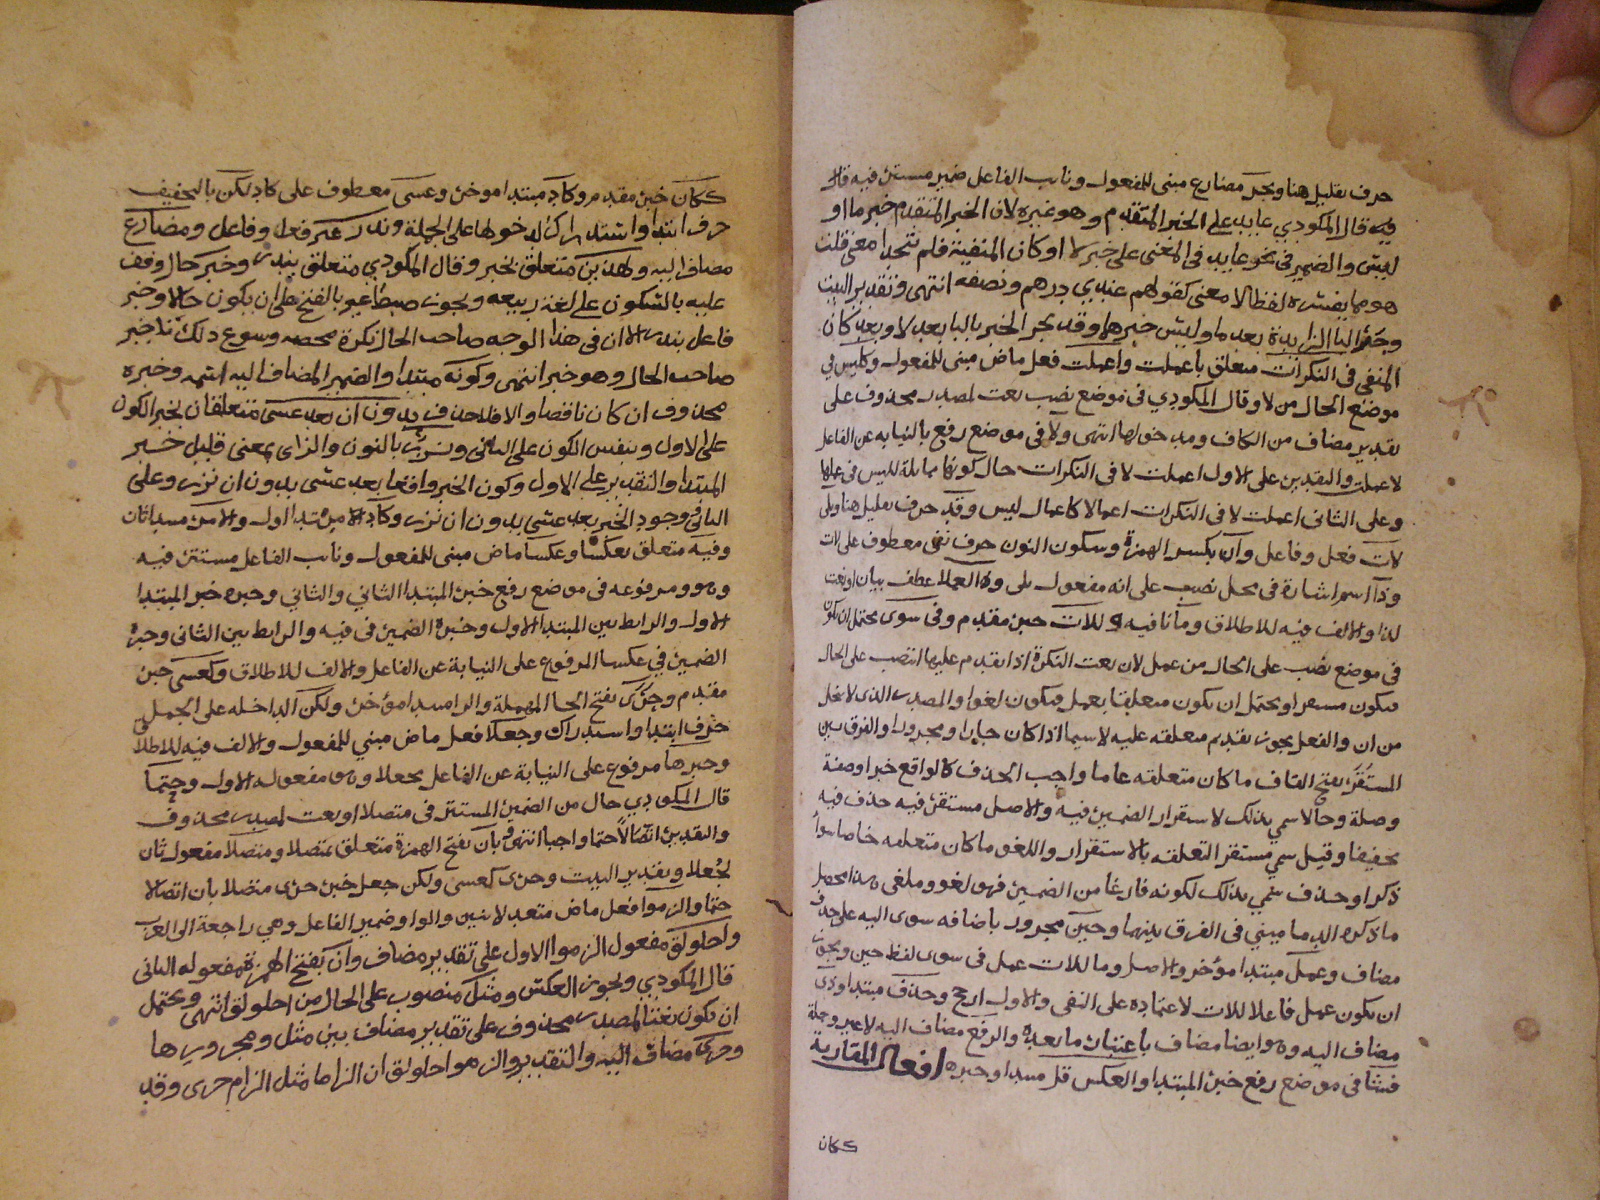 حرف تقليل هنا ويجر مضارع مبني للمفعول ونايب الفاعل ضمير مستتر فيه قال
فيه قال المكودي عايد على الخبر المتقدم وهو غيره لان الخبر المتقدم خبر ما او
ليس والضمير في يجر عايد في المعنى على خبر لا او كان المنفية فلم يتحدا معنى قلت
هو مما يفسره لفظا لا معنى كقولهم عندي درهم ونصفه انتهى وتقدير البيت
وجر البا الزايدة بعد ما وليس خبرها وقد يجر الخبر بالبا بعد لا وبعد كان
المنفي في النكرات متعلق باعملت واعملت فعل ماض مبني للمفعول وكليس في
موضع الحال من لا وقال المكودي في موضع نصب نعت لمصدر محذوف على
تقدير مضاف من الكاف ومدخولها انتهى ولا في موضع رفع بالنيابه عن الفاعل
لاعملت والتقدير على الاول اعملت لا في النكرات حال كونها مماثلة لليس في عملها
وعلى الثاني اعملت لا في النكرات اعمالا كاعمال ليس وقد حرف تقليل هنا وتلى
لات فعل وفاعل وان بكسر الهمزة وسكون النون حرف نفي معطوف على لات
وذا اسم اشارة في محل نصب على انه مفعول تلى والعملا عطف بيان او نعت
لذا والالف فيه للاطلاق وما نافيه وللات خبر مقدم وفي سوى يحتمل ان يكون
في موضع نصب على الحال من عمل لان نعت النكرة اذا تقدم عليها انتصب على الحال
فيكون مستقرا ويحتمل ان يكون متعلقا بعمل فيكون لغوا والمصدر الذي لا ينحل
من ان والفعل يجوز تقديم متعلقه عليه لا سيما اذا كان جارا ومجرورا والفرق بين
المستقر بفتح القاف ما كان متعلقه عاما واجب الحذف كالواقع خبرا وصفة
وصلة وحالا سمي بذلك لاستقرار الضمير فيه والاصل مستقر فيه حذف فيه
تخفيفا وقيل سمي مستقرا لتعلقه بالاستقرار واللغو ما كان متعلقه خاصا سوا
ذكر او حذف سمي بذلك لكونه فارغا من الضمير فهو لغو وملغى هذا محصل
ما ذكره الدماميني في الفرق بينهما وحين مجرور باضافه سوى اليه على حذف
مضاف وعمل مبتدا مؤخر والاصل وما للات عمل في سوى لفظ حين ويجوز
ان يكون عمل فاعلا للات لاعتماده على النفي والاول ارجح وحذف مبتدا وذي
مضاف اليه وهو ايضا مضاف باعتبار ما بعده والرفع مضاف اليه لا غير وجملة
فشا في موضع رفع خبر المبتدا والعكس قل مبتدا وخبره افعال المقاربة
ككان
ككان خبر مقدم وكاد مبتدا مؤخر وعسى معطوف على كاد لكن بالتخفيف
حرف ابتدا واستدراك لدخولها على الجملة وندر غير فعل وفاعل ومضارع
مضاف اليه ولهذين متعلق بخبر وقال المكودي متعلق بندر وخبر حال وقف
عليه بالسكون على لغة ربيعه ويجوز ضبط غير بالفتح على ان يكون حالا وخبر
فاعل بندر الا ان في هذا الوجه صاحب الحال نكرة محضه وسوغ ذلك تاخير
صاحب الحال وهو خبر انتهى وكونه مبتدا والضمير المضاف اليه اسمه وخبره
محذوف ان كان ناقصا والا فلا حذف بدون ان بعد عسى متعلقان بخبر الكون
على الاول وبنفس الكون على الثاني ونزر بالنون والزاى بمعنى قليل خبر
المبتدا والتقدير على الاول وكون الخبر واقعا بعد عسى بدون ان نزر وعلى
الثاني وجود الخبر بعد عسى بدون ان نزر وكاد الامر مبتدا اول والامر مبتدا ثان
وفيه متعلق بعكسا وعكسا ماض مبني للمفعول ونايب الفاعل مستتر فيه
وهو ومرفوعه في موضع رفع خبر المبتدا الثاني والثاني وخبره خبر المبتدا
الاول والرابط بين المبتدا الاول وخبره الضمير في فيه والرابط بين الثاني وخبره
الضمير في عكسا المرفوع على النيابة عن الفاعل والالف للاطلاق وكعسى خبر
مقدم وحرى بفتح الحا المهملة والرا مبتدا مؤخر ولكن الداخله على الجمل
حرف ابتدا واستدراك وجعلا فعل ماض مبني للمفعول والالف فيه للاطلاق
وخبرها مرفوع على النيابة عن الفاعل بجعلا وهو مفعوله الاول وحتما
قال المكودي حال من الضمير المستتر في متصلا او نعت لمصدر محذوف
والتقدير اتصالا حتما واجبا انتهى وبان بفتح الهمزة متعلق بمتصلا ومتصلا مفعول ثان
لجعلا وتقدير البيت وحرى كعسى ولكن جعل خبر حرى متصلا بان اتصالا
حتما والزموا فعل ماض متعد لاثنين والواو ضمير الفاعل وهي راجعة الى العرب
واخلولق مفعول الزموا الاول على تقدير مضاف وان بفتح الهمزة مفعوله الثاني
قال المكودي ويجوز العكس ومثل منصوب على الحال من اخلولق انتهى ويحتمل
ان يكون نعتا لمصدر محذوف على تقدير مضاف بين مثل ومجرورها
وحرى مضاف اليه والتقدير والزموا اخلولق ان الزاما مثل الزام حرى وقد